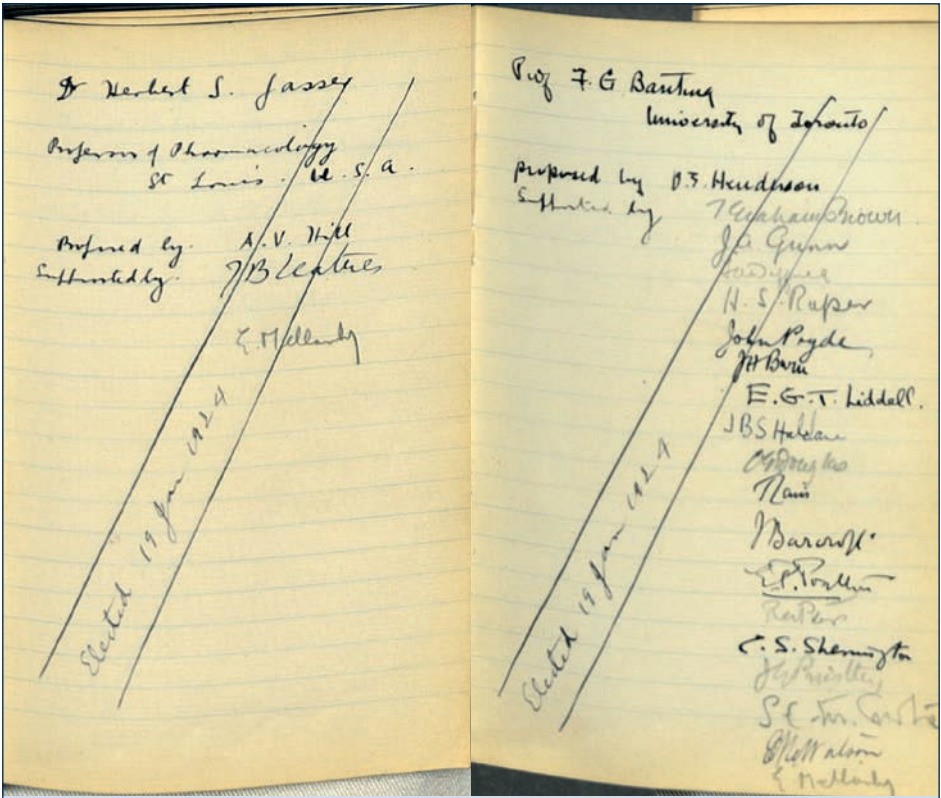 Dr Herbert S. Gasser
Professor of Pharmacology
St Louis. U.S.A.
Proposed by. A. V. Hill
Supported by. J B Leathes
E. Mellanby
Elected 19 Jan 1924
Prof F. G Banting
University of Toronto
proposed by V. E. Henderson
Supported by T Graham Brown
J. A. Gunn
H. S. Raper
John Pryde
J H Burn
E. G. T. Liddell.
J B S Haldane
C G Douglas
J Barcroft
E. P. Poulton
C. S. Sherrington
J G Priestley
E Mellanby
Elected 19 Jan 1924